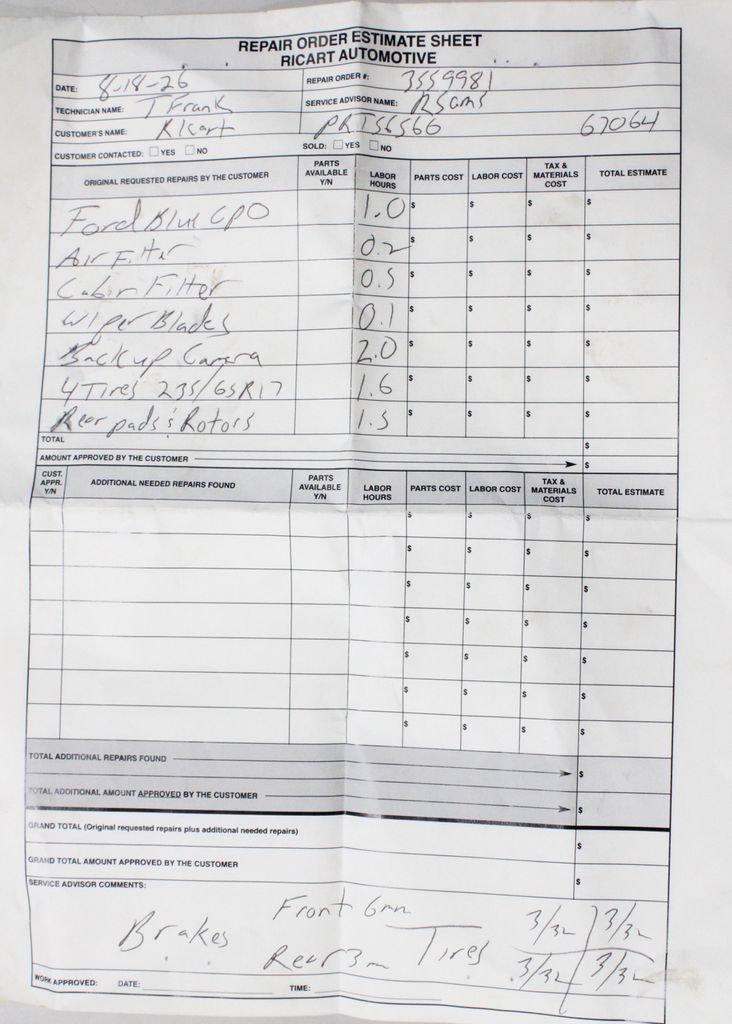 REPAIR ORDER ESTIMATE SHEET
RICART AUTOMOTIVE
DATE: 8-18-26
REPAIR ORDER #: 3559981
TECHNICIAN NAME: T Frank
SERVICE ADVISOR NAME: RSams
CUSTOMER'S NAME: Ricart PRT56566 67064
CUSTOMER CONTACTED: YES NO
SOLD: YES NO
ORIGINAL REQUESTED REPAIRS BY THE CUSTOMER PARTS AVAILABLE Y/N LABOR HOURS PARTS COST LABOR COST TAX & MATERIALS COST TOTAL ESTIMATE
Ford Blue CPO 1.0 $ $ $ $
Air Filter 0.2 $ $ $ $
Cabin Filter 0.5 $ $ $ $
Wiper Blades 0.1 $ $ $ $
Backup Camera 2.0 $ $ $ $
4 Tires 235/65R17 1.6 $ $ $ $
Rear pads & Rotors 1.5 $ $ $ $
TOTAL $
AMOUNT APPROVED BY THE CUSTOMER $
CUST. APPR. Y/N ADDITIONAL NEEDED REPAIRS FOUND PARTS AVAILABLE Y/N LABOR HOURS PARTS COST LABOR COST TAX & MATERIALS COST TOTAL ESTIMATE
$ $ $ $
$ $ $ $
$ $ $ $
$ $ $ $
$ $ $ $
$ $ $ $
$ $ $ $
TOTAL ADDITIONAL REPAIRS FOUND $
TOTAL ADDITIONAL AMOUNT APPROVED BY THE CUSTOMER $
GRAND TOTAL (Original requested repairs plus additional needed repairs) $
GRAND TOTAL AMOUNT APPROVED BY THE CUSTOMER $
SERVICE ADVISOR COMMENTS:
Brakes Front 6mm Tires 3/32 3/32
Rear 3m 3/32 3/32
WORK APPROVED: DATE: TIME: